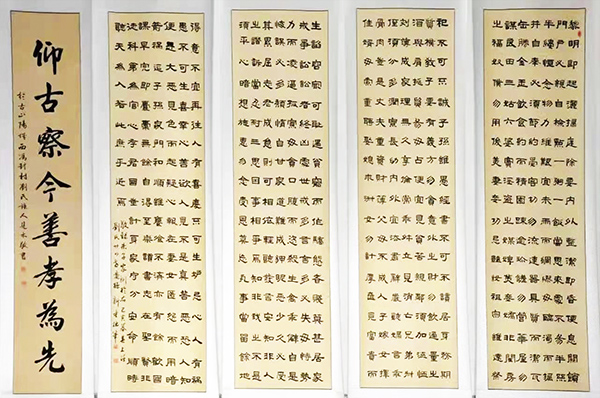 黎明即起灑掃庭除要內外整潔既昏便息關鎖
門戶必親自檢點一粥一飯當思來處不易半絲
半縷恆念物力維艱宜未雨而綢繆毋臨渴而掘
井自奉必須儉約宴客切勿流連器具質而潔瓦
缶勝金玉飲食約而精園蔬愈珍饈勿營華屋勿
謀良田三姑六婆實淫盜之媒婢美妾嬌非閨房
之福奴僕勿用俊美妻妾切忌艷妝祖宗雖遠祭
祀不可不誠子孫雖愚經書不可不讀居身務期
質樸教子要有義方勿貪意外之財勿飲過量之
酒與肩挑貿易勿佔便宜見貧苦親鄰須加溫恤
刻薄成家理無久享倫常乖舛立見消亡兄弟叔
姪須分多潤寡長幼內外宜法肅辭嚴聽婦言乖
骨肉豈是丈夫重資財薄父母不成人子嫁女擇
佳婿毋索重聘娶媳求淑女勿計厚奩見富貴而
生諂容者可恥遇貧窮而作驕態者賤莫甚居家
戒爭訟訟則終凶處世戒多言言多必失毋恃勢
力而凌逼孤寡勿貪口腹而恣殺牲禽乖僻自是
悔誤必多頹惰自甘家道難成狎昵惡少久必受
其累屈志老成急則可相依輕聽發言安知非人
之譖訴當忍耐三思因事相爭焉知非我之不是
須平心暗想施惠無念受恩莫忘凡事當留餘地
得意不宜再往人有喜慶不可生妒忌心人有禍
患不可生喜幸心善欲人見不是真善惡恐人知
便是大惡見色而起淫心報在妻女匿怨而用暗
箭禍延子孫家門和順雖饔飧不繼亦有餘歡國
課早完即囊橐無餘自得至樂讀書志在聖賢非
徒科第為官心存君國豈計身家守分安命順時
聽天為人若此庶乎近焉
仰古察今善孝為先